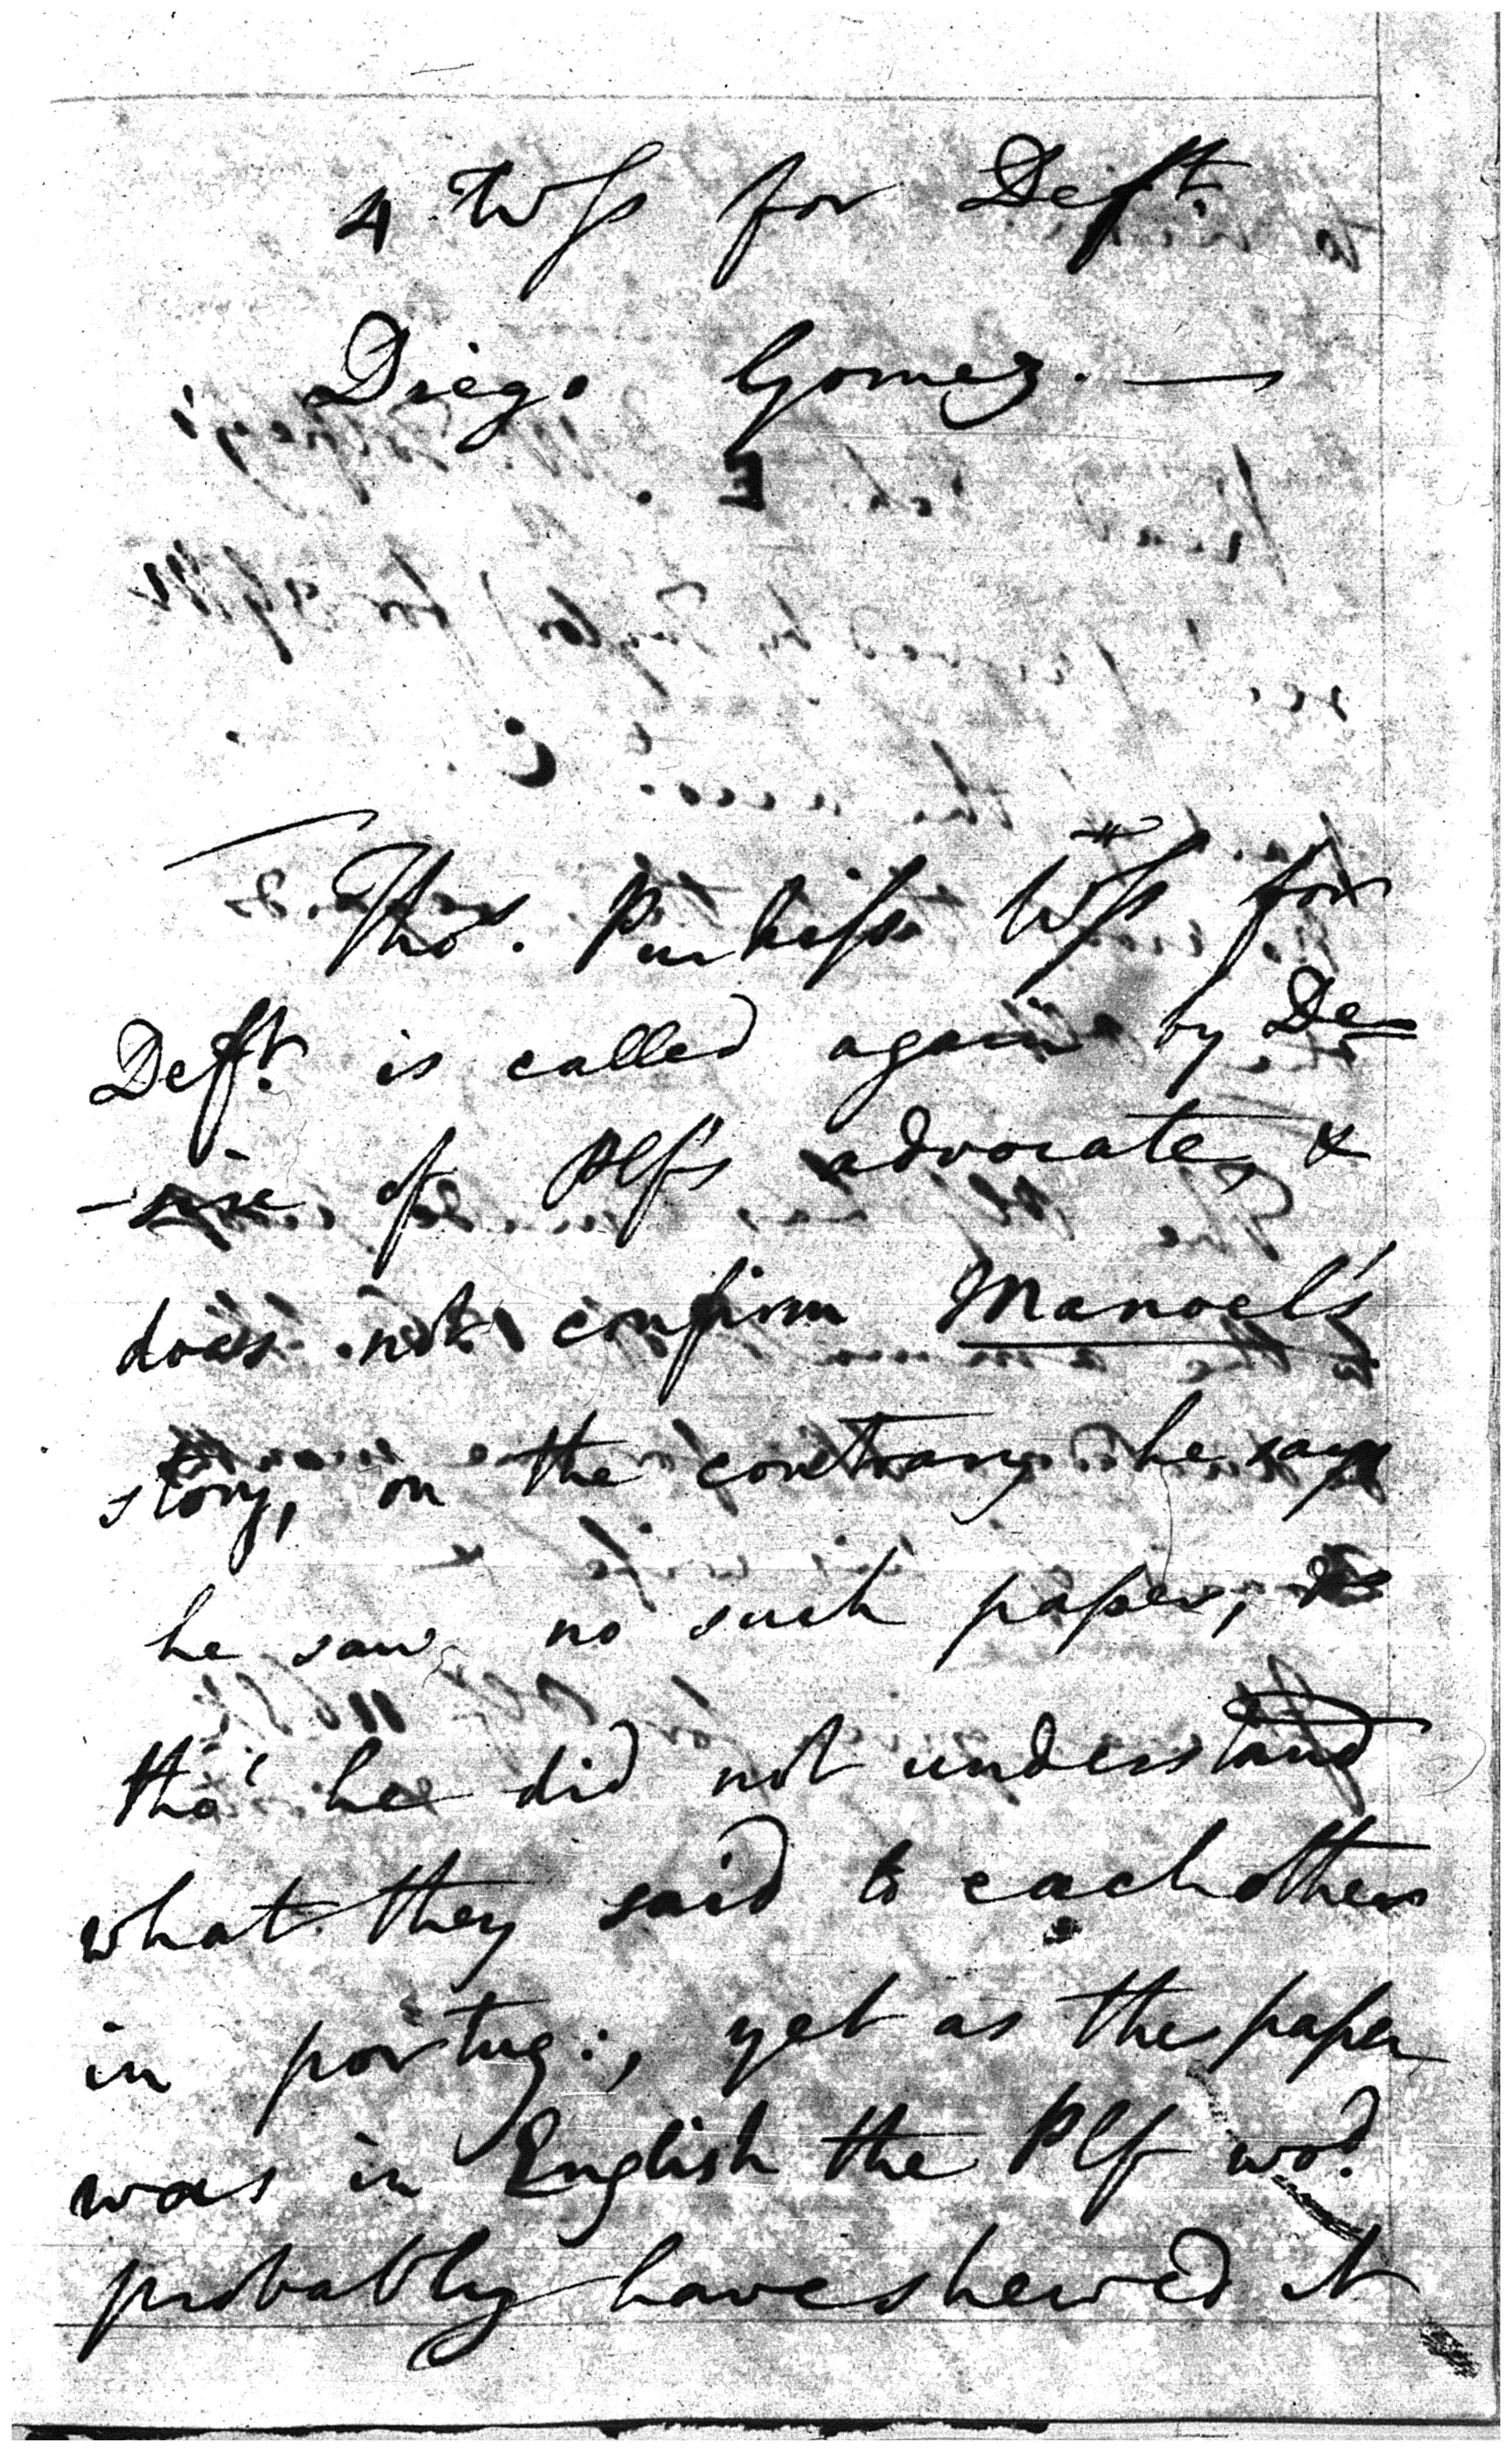 4 Wss for Deft.
Diego Gomez. —
E
Thos. Purkess Wss for
Deft. is called again by De-
-sire of Plfs advocate, &
does not confirm Manoel's
story, on the contrary he says
he saw no such paper, &
tho' he did not understand
what they said to each other
in portug:, yet as the paper
was in English the Plf wod.
probably have shewed it